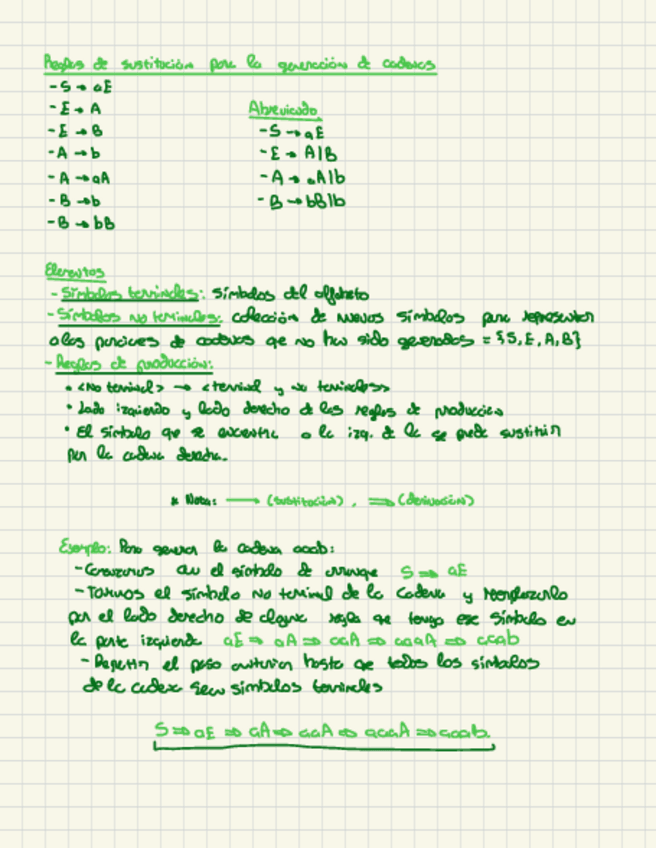 Reglas de sustitución para la generación de cadenas
- S → aE
- E → A
- E → B
- A → b
- A → aA
- B → b
- B → bB
Abreviado
- S → aE
- E → A|B
- A → aA|b
- B → bB|b
Elementos
- Símbolos terminales: símbolos del alfabeto
- Símbolos no terminales: colección de nuevos símbolos para representar
a las porciones de cadenas que no han sido generadas = {S, E, A, B}
- Reglas de producción:
• <No terminal> → <terminal y no terminales>
• Lado izquierdo y lado derecho de las reglas de producción
• El símbolo que se encuentra a la izq. de la se puede sustituir
por la cadena derecha.
* Nota: → (sustitución), ⇒ (derivación)
Ejemplo: Para generar la cadena aaab:
- Comenzamos con el símbolo de arranque S ⇒ aE
- Tomamos el símbolo no terminal de la cadena y reemplazarlo
por el lado derecho de alguna regla que tenga ese símbolo en
la parte izquierda aE ⇒ aA ⇒ aaA ⇒ aaaA ⇒ aaab
- Repetir el paso anterior hasta que todos los símbolos
de la cadena sean símbolos terminales
S ⇒ aE ⇒ aA ⇒ aaA ⇒ aaaA ⇒ aaab.